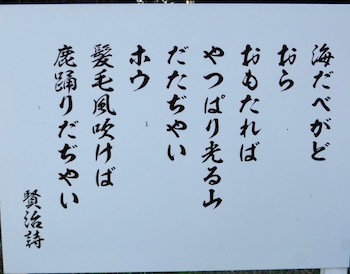 海だべがど
おら
おもたれば
やつぱり光る山
だたぢやい
ホウ
髪毛風吹けば
鹿踊りだぢやい
賢治詩